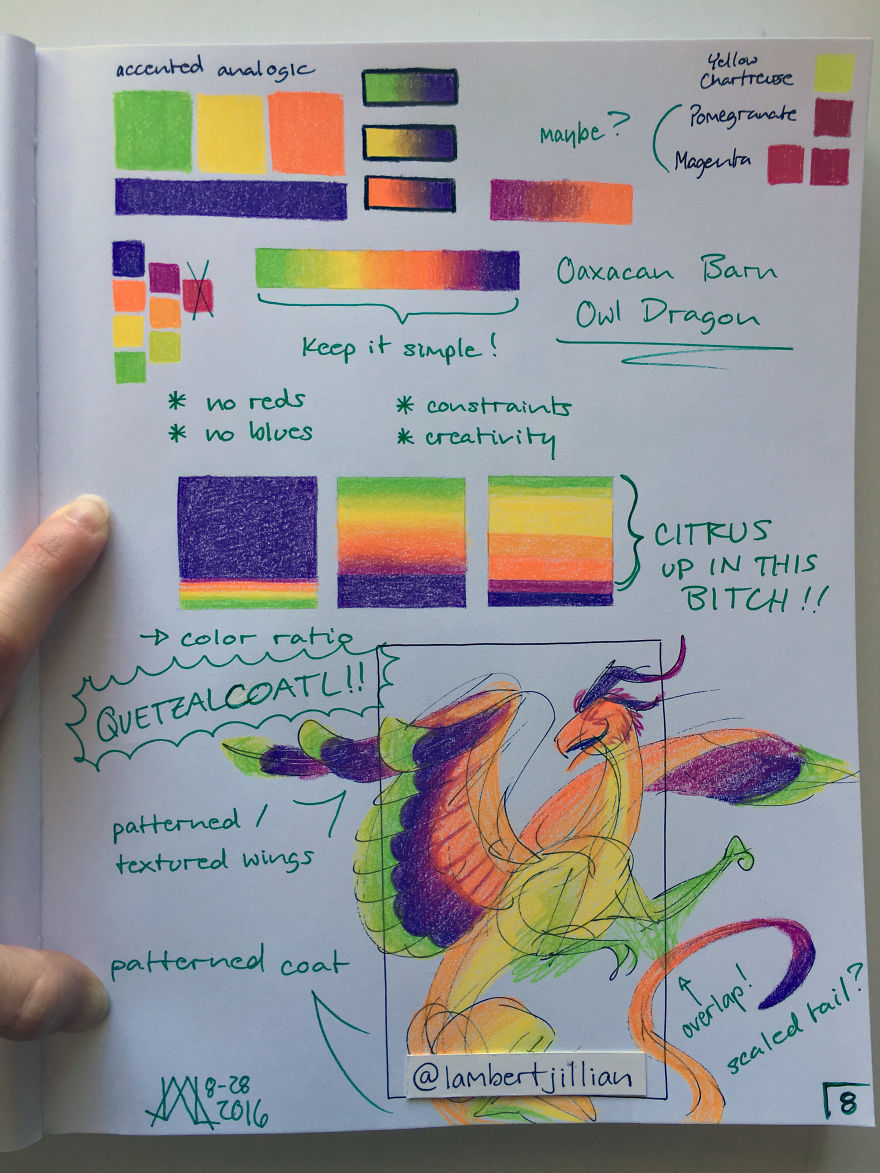 accented analogic
Yellow
Chartreuse
maybe?
Pomegranate
Magenta
Oaxacan Barn
Owl Dragon
Keep it simple!
* no reds
* no blues
* constraints
* creativity
CITRUS
UP IN THIS
BITCH!!
→ color ratio
QUETZALCOATL!!
patterned /
textured wings
patterned coat
overlap!
scaled tail?
@lambertjillian
8-28
2016
8